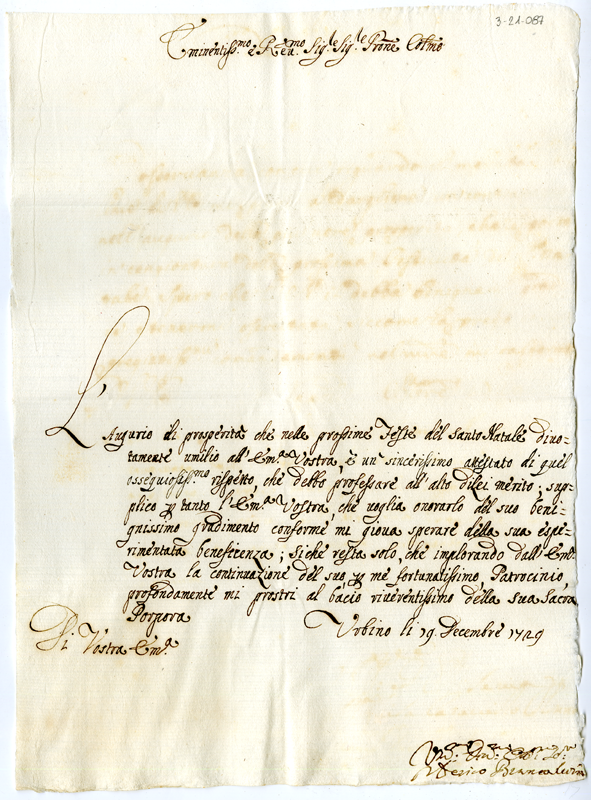 3-21-087
Eminentiss.mo e Reu.mo Sig.le Sig.le Prone Colmo
L'
Augurio di prosperità che nelle prossime Feste del Santo Natale diuo-
tamente umilio all'Em.a Vostra, è un sincerissimo attestato di quel
ossequiosiss.mo rispetto, che debbo professare all'alto di lei merito; sup-
plico p tanto l'Em.a Vostra, che uoglia onorarlo del suo beni-
gnissimo gradimento conforme mi gioua sperare della sua espe-
rimentata beneficenza; siche resta solo, che implorando dall'Em.a
Vostra la continuazione del suo, p me fortunatissimo, Patrocinio,
profondamente mi prostri al bacio riuerentissimo della sua Sacra
Porpora
Urbino li 19 Decembre 1729
Di Vostra Em.a